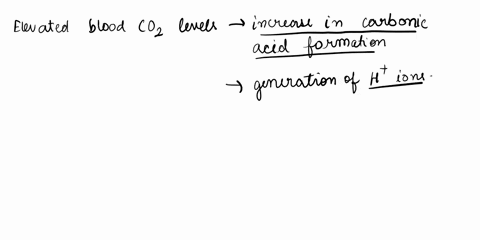 Elevated blood CO₂ levels → increase in carbonic
acid formation
→ generation of H⁺ ions.